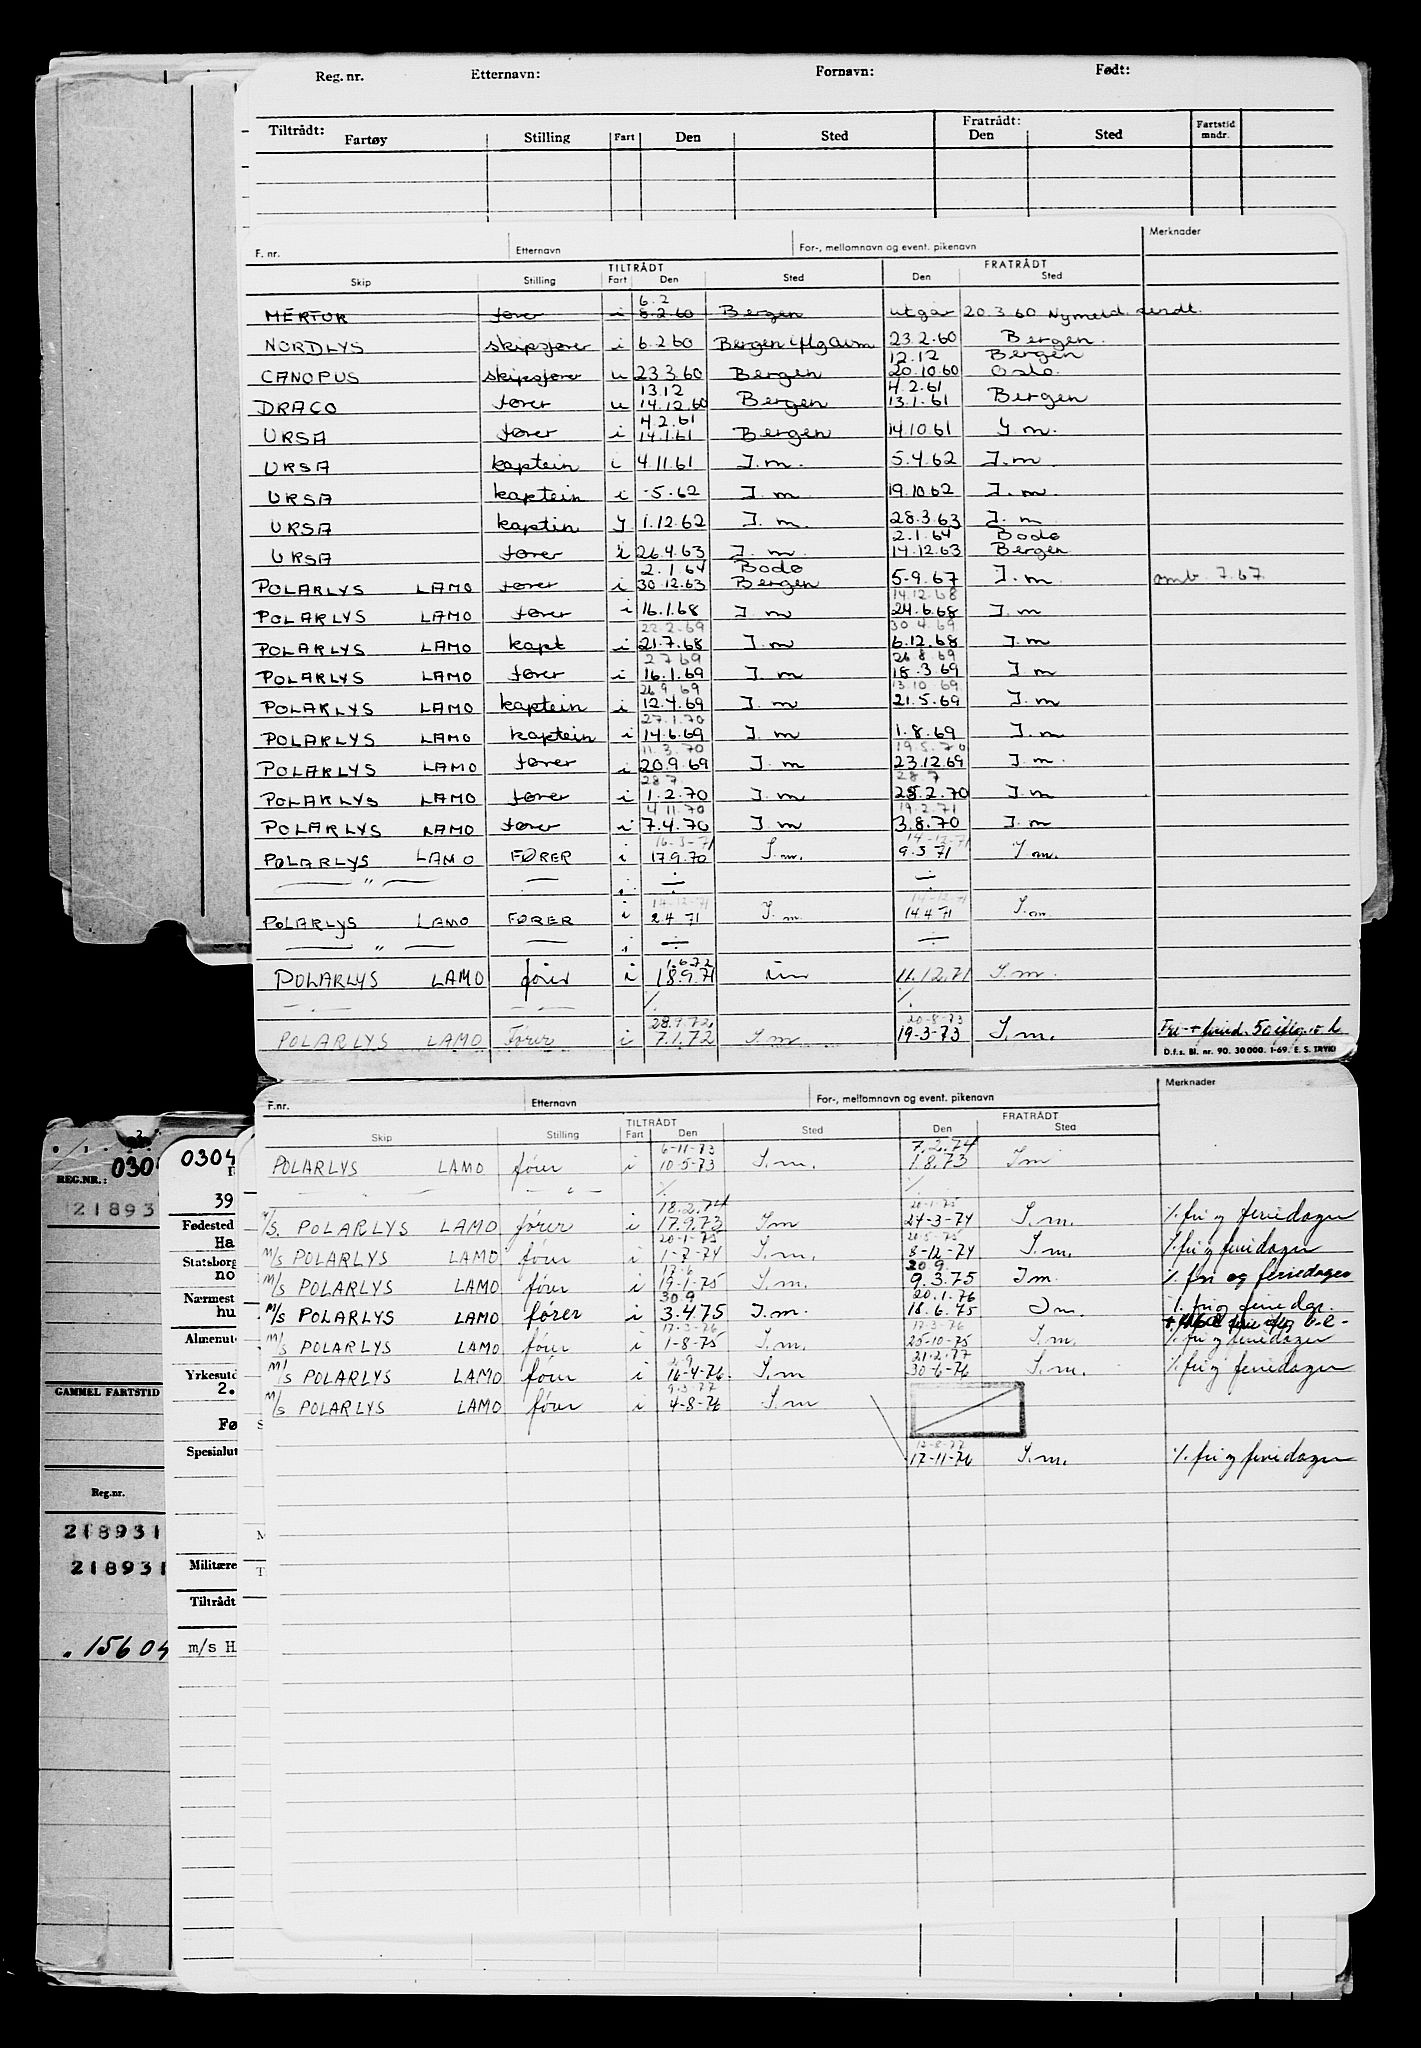 Reg. nr. Etternavn: Fornavn: Født:
Tiltrådt: Fratrådt: Fartstid
Fartøy Stilling Fart Den Sted Den Sted mndr.
Merknader
F. nr. Etternavn For-, mellomnavn og event. pikenavn
TILTRÅDT FRATRÅDT
Skip Stilling Fart Den Sted Den Sted
6.2
MERKUR fører i 8.2.60 Bergen utgår 20 3 60 Nymeld. sendt.
NORDLYS skipsfører i 6.2 60 Bergen iflg 23.2.60 Bergen.
12.12 Bergen
CANOPUS skipsfører u 23.3.60 Bergen 20.10.60 Oslo.
13.12 4.2.61
DRACO fører u 14.12.60 Bergen 13.1.61 Bergen
4.2.61
URSA fører i 14.1.61 Bergen 14.10.61 I m.
URSA kaptein i 4.11.61 I. m. 5.4.62 I. m.
URSA kaptein i -5.62 I. m 19.10.62 I. m.
URSA kaptin y 1.12.62 I. m. 28.3.63 I. m
2.1.64 Bodø
URSA fører i 26.4.63 I. m. 14.12.63 Bergen
2.1.64 Bodø
POLARLYS LAMO fører i 30.12.63 Bergen 5-9.67 I. m. omb. 7.67.
14.12.68
POLARLYS LAMO fører i 16.1.68 I m 24.6.68 I. m
22.2.69 30 4.69
POLARLYS LAMO kapt i 21.7.68 I. m 6.12.68 I. m
2 7 69 26 8 69
POLARLYS LAMO fører i 16.1.69 I. m 18.3.69 I. m
26 9. 69 13 10 69
POLARLYS LAMO kaptein i 12.4.69 I. m 21.5.69 I. m
27.1.70
POLARLYS LAMO kaptein i 14.6.69 I. m 1.8.69 I. m
11.3.70 19.5.70
POLARLYS LAMO fører i 20.9.69 I. m 23.12.69 I. m.
28 7. 28 7
POLARLYS LAMO fører i 1.2.70 I. m 25.2.70 I. m
4 11 70 19.2.71
POLARLYS LAMO fører i 7.4.70 I m 3.8.70 I. m
16-3-71 14-12.71
POLARLYS LAMO FØRER i 17.9.70 I. m. 9.3 71 I m.
— " — — i ÷ ÷
14-12-71 14-12-71
POLARLYS LAMO FØRER i 2.4 71 I. m. 14.4 71 I. m.
— " — — i ÷ ÷
1.6.72
POLARLYS LAMO fører i 18.9.71 im 11.12.71 I. m.
— " — — " — ٪. ٪.
28.9.72. 20-8-73
POLARLYS LAMO Fører i 7.1.72 I m 19-3-73 I. m.
D.f.s. Bl. nr. 90. 30 000. 1-69. E. S. TRYKK
Merknader
F.nr. Etternavn For-, mellomnavn og event. pikenavn
TILTRÅDT FRATRÅDT
Skip Stilling Fart Den Sted Den Sted
6-11-73 7.2.74
POLARLYS LAMO fører i 10-5-73 I. m. 1 8.73 I m
— " — ٪. ٪.
18.2.74 20-1-75
M/S. POLARLYS LAMO fører i 17.9.73 I m 24-3-74 I. m. ٪. fri og feriedager
20-1-75 20-5-75
M/S POLARLYS LAMO fører i 1-7-74 I. m. 8-12-74 I. m. ٪. fri og feriedager
17.6 20 9.
M/S POLARLYS LAMO fører i 19-1-75 I. m. 9.3.75 I m. ٪ fri og feriedager
30 9 20.1.76
M/S POLARLYS LAMO fører i 3.4.75 I. m. 18.6.75 I m. ٪. fri og feriedgr.
17-3-76 17-3-76
M/S POLARLYS LAMO fører i 1-8-75 I. m. 25-10-75 I. m. ٪. fri og feriedager
2-9 21-2-77
M/S POLARLYS LAMO fører i 16-4-76. I. m 30-6-76 I. m. ٪. fri og feriedager
9-3-77
M/S POLARLYS LAMO fører i 4-8-76 I. m
12-8-77
17-11-76 I. m. ٪. fri og feriedager
0304
REG.NR.:
218931
39
Fødested
Ha
Statsborg
no
Nærmest
hu
Almenut
Yrkesutd
2.
GAMMEL FARTSTID
Fø
Spesialut
Reg.nr.
218931
218931
Militære
Tiltrådt
15604
m/s H